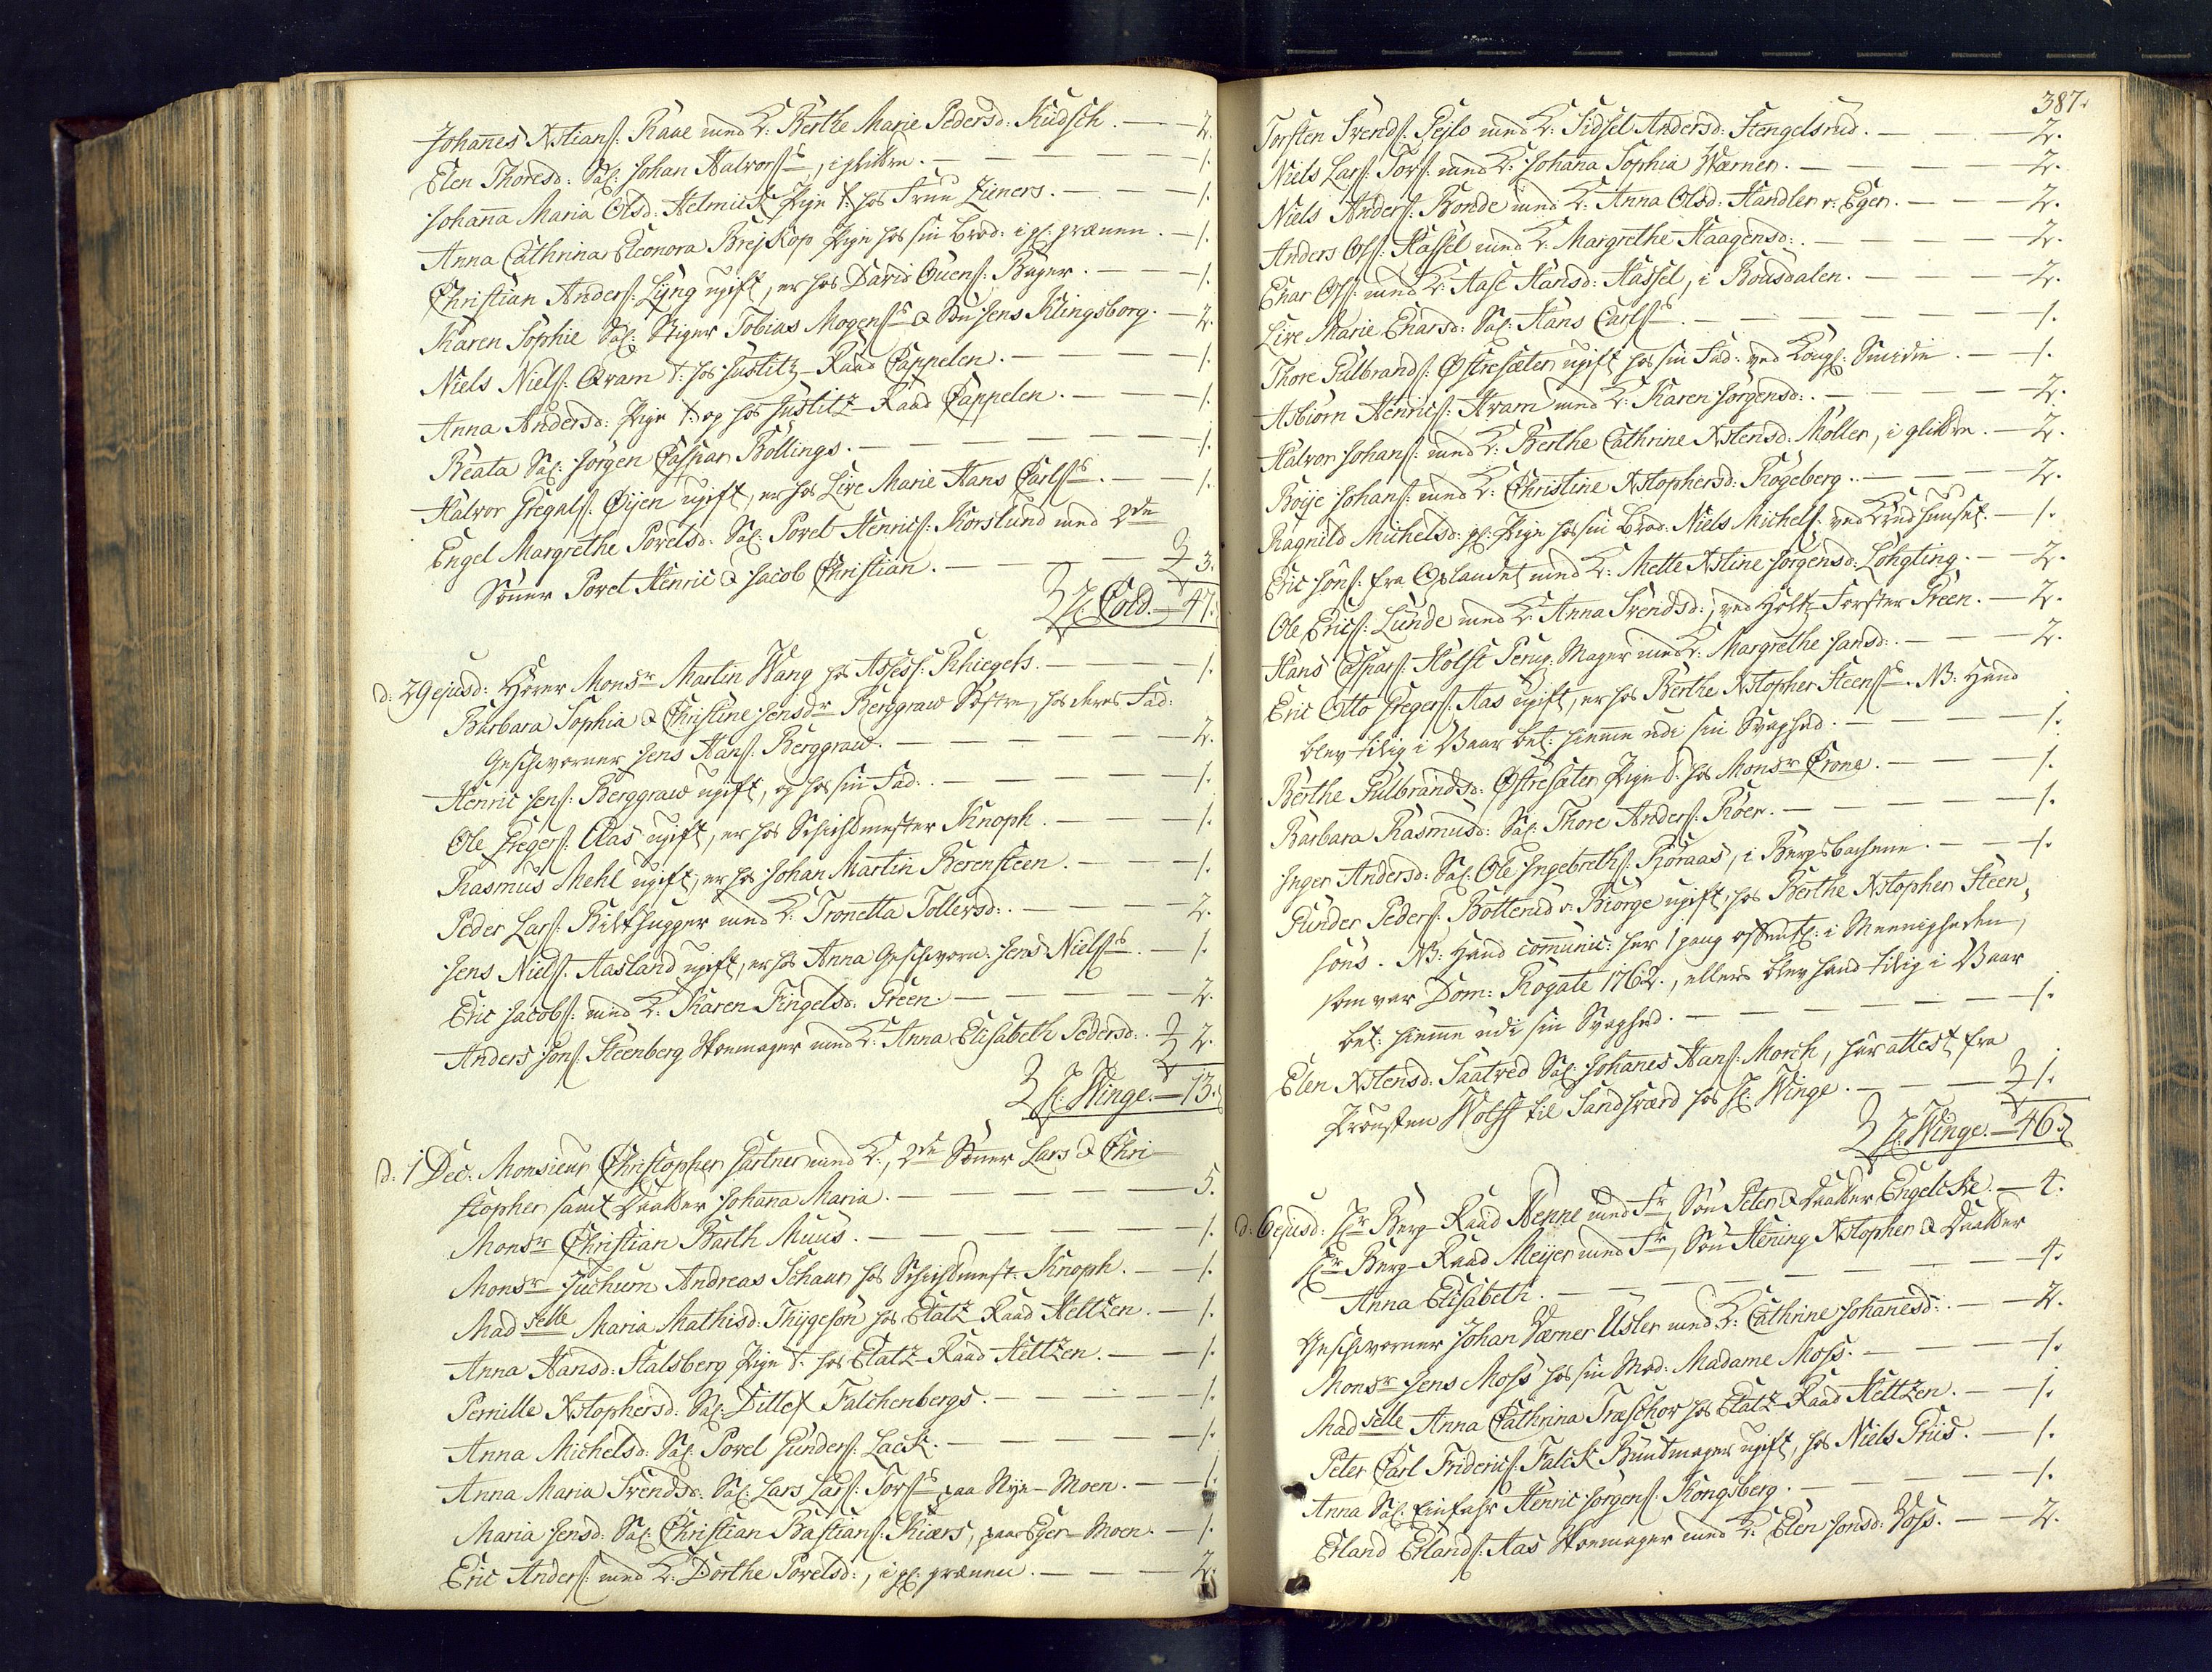 Johanes Xstians: Raae med K: Berthe Marie Pedersd: Kudsch. — 2.
Elen Thoresd: Sal: Johan Halvors:, i glittre. — 1.
Johanna Maria Olsd: Helmick Pige t: hos Frue Zieners. — 1.
Anna Cathrina Eleonora Brejskop Pige hos sin Brod: i gl: grænen. — 1.
Christian Anders: Lÿng ugift, er hos David Ouens: Bager. — 1.
Karen Sophie Sal: Stiger Tobias Mogens: & Søn Jens Klingsborg. — 2.
Niels Niels: Qvam t: hos Justitz-Raad Cappelen. — 1.
Anna Andersd: Pige t: og hos Justitz-Raad Cappelen. — 1.
Beata Sal: Jørgen Caspar Bollings. — 1.
Halvor Gregals: Øijen ugift, er hos Live Marie Hans Carls: — 1.
Engel Margrethe Povelsd: Sal: Povel Henrics: Korslund med 2de
Sønner Povel Henric & Jacob Christian. — 3.
H: Cold. — 47.
d: 29 ejusd: Hörer Monsr Martin Wang hos Assess: — 1.
Barbara Sophia & Christine Jensdr Berggraw Søstre, hos deres Fad:
Geschworner Jens Hans: Berggraw. — 2.
Henric Jens: Berggraw ugift, og hos sin Fad: — 1.
Ole Gregers: Aas ugift, er hos Schichtmester Knoph. — 1.
Rasmus Mehl ugift, er hos Johan Martin Berensteen. — 1.
Peder Lars: Bilthugger med K: Tronetta Tollevsd: — 2.
Jens Niels: Aasland ugift, er hos Anna Geschworn: Jens Niels: — 1.
Eric Jacobs: med K: Karen Fingelsd: Green. — 2.
Anders Jons: Steenberg Skoemager med K: Anna Elisabeth Pedersd: — 2.
H: Winge. — 13.
d: 1 Dec: Monsieur Christopher Gartner med K:, 2de Sønner Lars & Chri-
stopher samt Daatter Johanna Maria. — 5.
Monsr Christian Barth Muus. — 1.
Monsr Juchum Andreas Schaur hos Schichtmest: Knoph. — 1.
Madselle Maria Mathisd: Thÿgeson hos Etatz-Raad Heltzen. — 1.
Anna Hansd: Stalsberg Pige t: hos Etatz-Raad Heltzen. — 1.
Pernille Xstophersd: Sal: Ditlef Falchenbergs. — 1.
Anna Michelsd: Sal: Povel Gunders: Lack. — 1.
Anna Maria Svendsd: Sal: Lars Lars: Tors: paa Nye-Moen. — 1.
Maria Jensd: Sal: Christian Bastians: Kiærs, paa Eger-Moen. — 1.
Eric Anders: med K: Dorthe Povelsd:, i gl: grænen. — 2.
387.
Torsten Svends: Gejlo med K: Sidsel Andersd: Stengelsrud. — 2.
Niels Lars: Tors: med K: Johana Sophia Wærner. — 2.
Niels Anders: Bonde med K: Anna Olsd: Handler v: Eger. — 2.
Anders Ols: Hassel med K: Margrethe Haagensd: — 2.
Enar Ols: med K: Aase Hansd: Hassel, i Bousdalen. — 2.
Live Marie Enarsd: Sal: Hans Carls: — 1.
Thore Gulbrands: Østresæter ugift hos sin Fad: ved Kongl: Smidie. — 1.
Asbiørn Henrics: Hvam med K: Karen Jørgensd: — 2.
Halvor Johans: med K: Berthe Cathrine Xstensd: Møller, i glittre. — 2.
Boije Johans: med K: Christine Xstophersd: Rogeberg. — 2.
Ragnild Michelsd: gl: Pige hos sin Brod: Niels Michels: ved — 1.
Eric Jons: fra Oplandet med K: Mette Xstine Jørgensd: Lohgting. — 2.
Ole Erics: Lunde med K: Anna Svendsd:, ved Holtz-Førster Green. — 2.
Hans Caspars: Holst Peruq-Mager med K: Margrethe Jansd: — 2.
Eric Otto Gregers: Aas ugift, er hos Berthe Xstopher Steens: NB: Hand
blev tilig i Vaar bet: hiemme udi sin Svaghed. — 1.
Berthe Gulbrandsd: Østresæter Pige t: hos Monsr Crone. — 1.
Barbara Rasmusd: Sal: Thore Anders: Roer. — 1.
Inger Andersd: Sal: Ole Ingebreths: Roraas, i Bergsbachene. — 1.
Gunder Peders: Botterud v: Biørge ugift, hos Berthe Xstopher Steen-
søns. NB: Hand comunic: her 1 gang offentl: i Meenigheden,
som var Dom: Rogate 1762., ellers blev hand tilig i Vaar
bet: hiemme udi sin Svaghed. — 1.
Elen Xstensd: Saatved Sal: Johanes Hans: Morch, har attest fra
Provsten Wolff til Sandsværd hos H: Winge. — 1.
H: Winge. — 46.
d: 6 ejusd: Hr Berg-Raad Henne med Fr, Søn Peter & Daatter Engelcke. — 4.
Hr Berg-Raad Meijer med Fr, Søn Hening Xstopher & Daatter
Anna Elisabeth. — 4.
Geschworner Johan Værner Usler med K: Cathrine Johanesd: — 2.
Monsr Jens Moss hos sin Mod: Madame Moss. — 1.
Madselle Anna Cathrina Træschov hos Etatz-Raad Heltzen. — 1.
Peter Carl Friderics: Falck Buntmager ugift, hos Niels Friis. — 1.
Anna Sal: Einfahr Henric Jørgens: Kongsberg. — 1.
Erland Erlands: Aas Skoemager med K: Elen Jonsd: Voss. — 2.